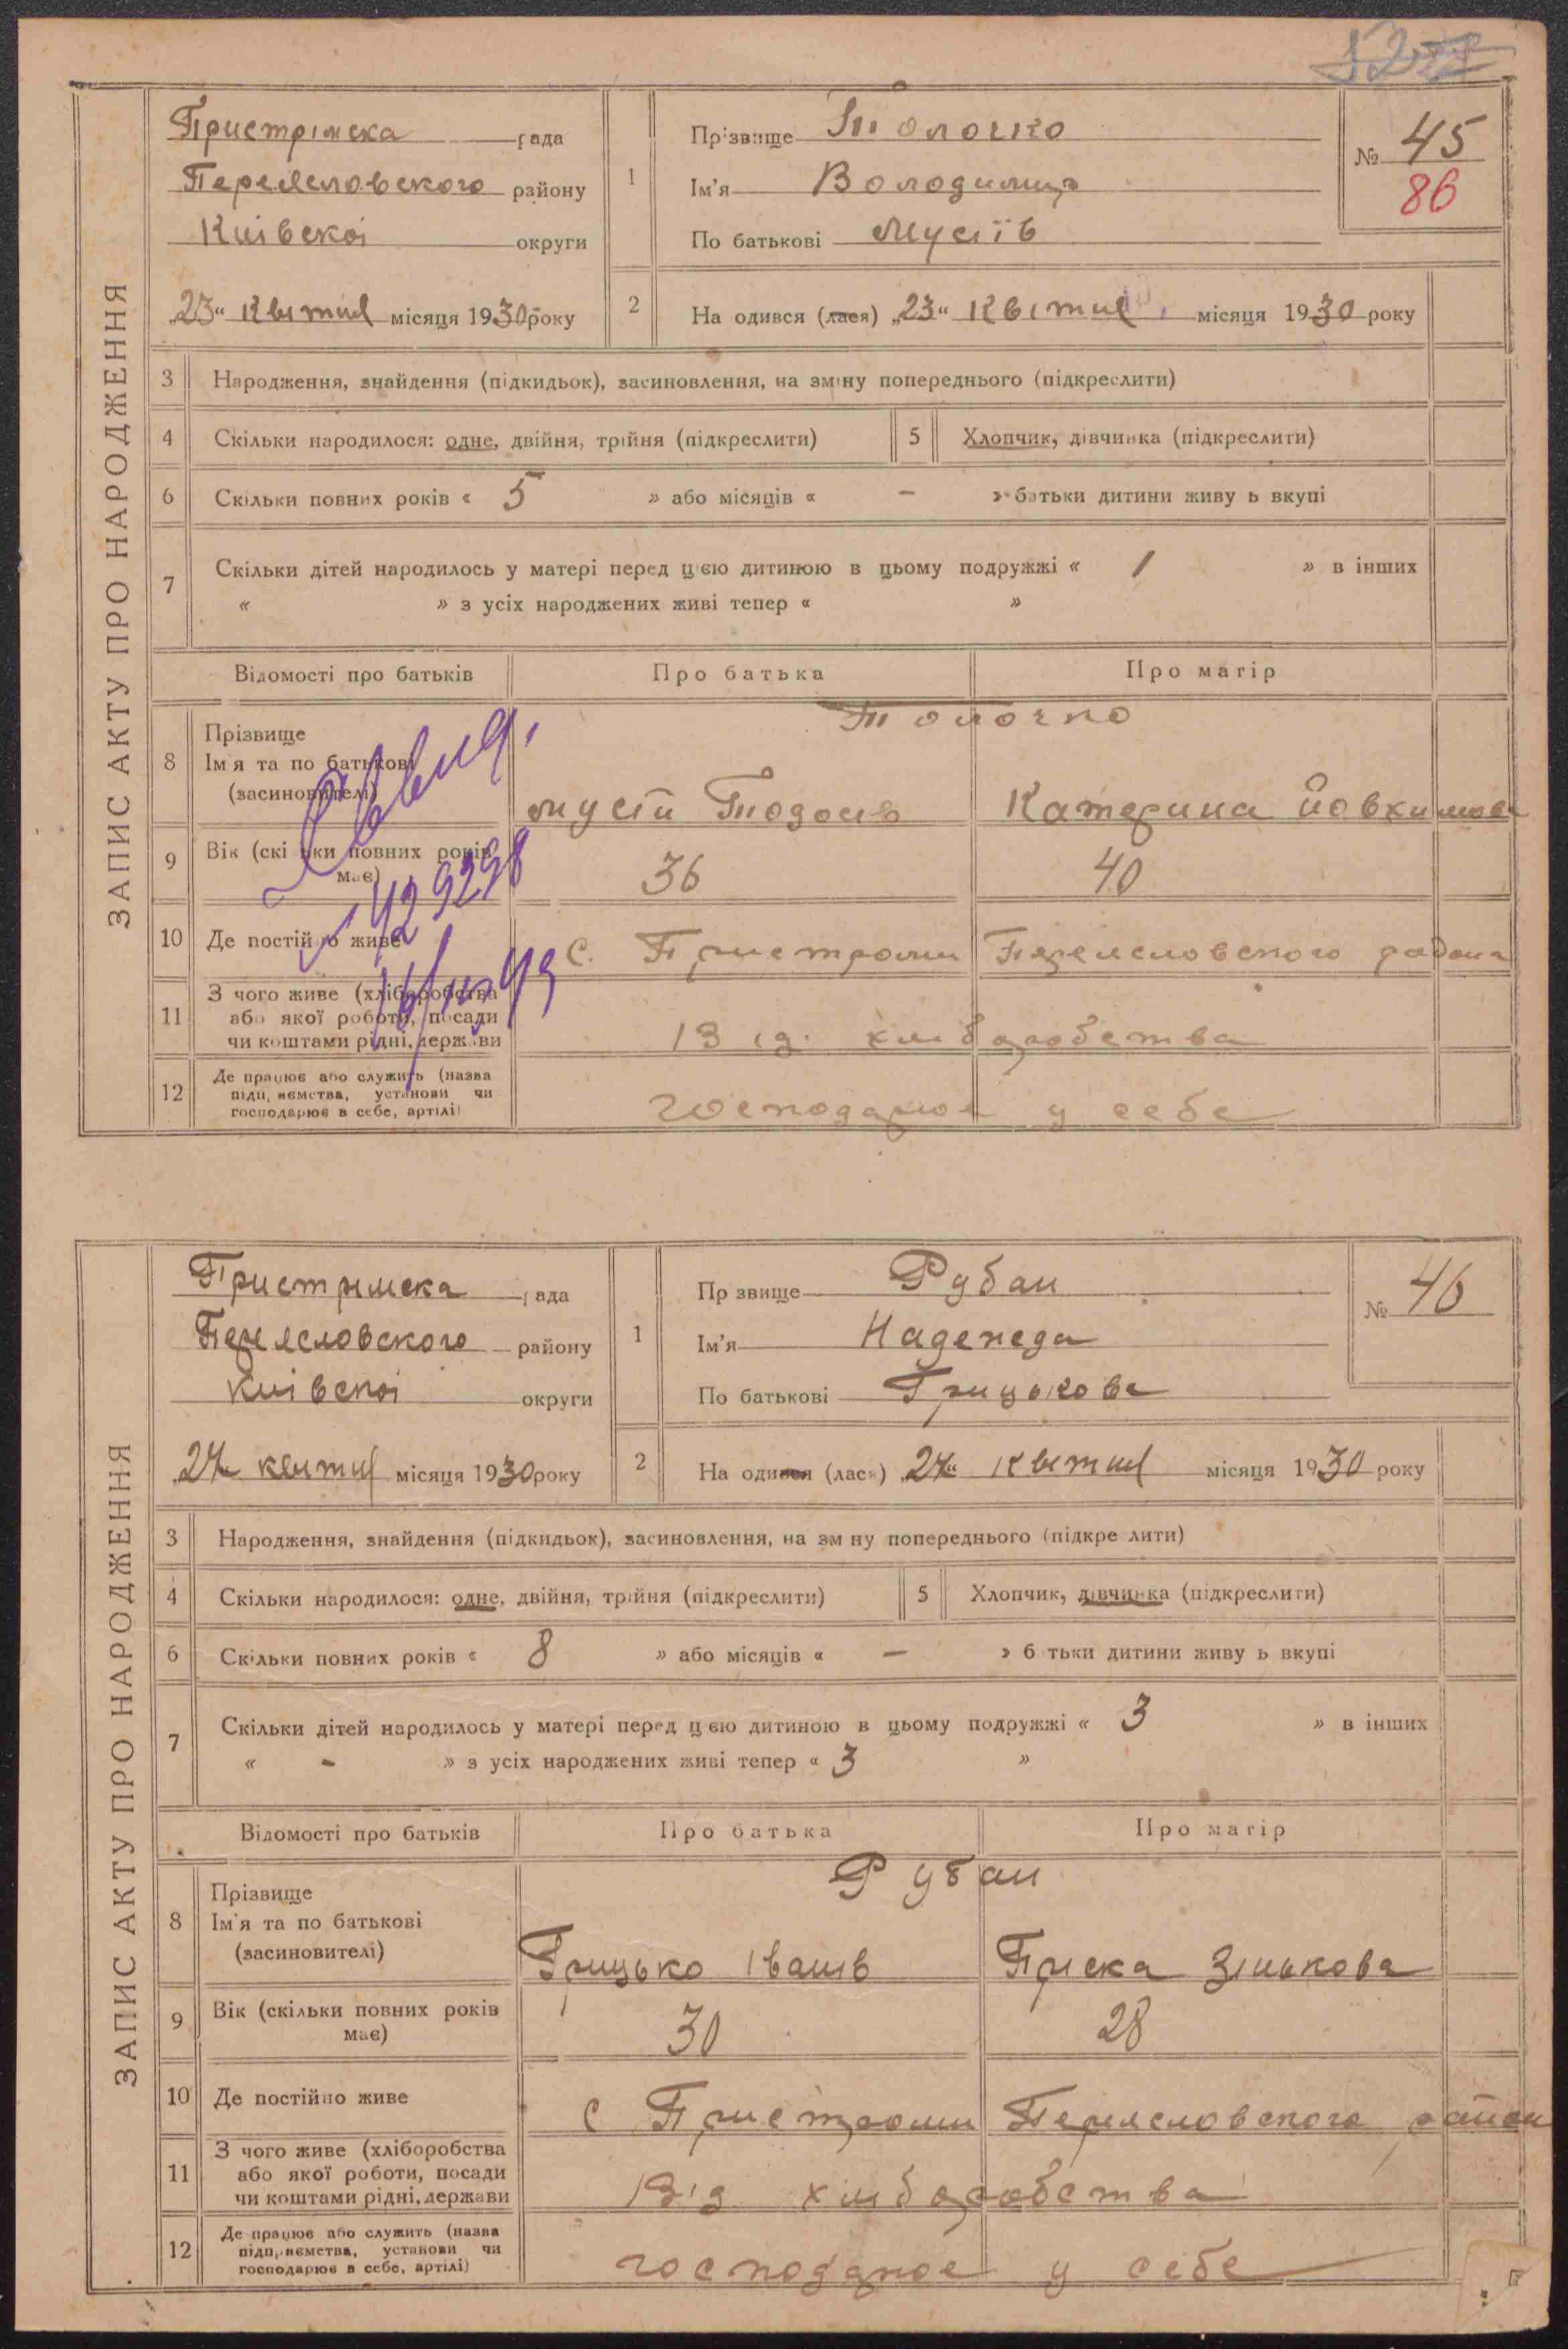 ЗАПИС АКТУ ПРО НАРОДЖЕННЯ
Пристрімска рада
Переясловского району
Київскої округи
„23“ Квітня місяця 1930 року
1 Прізвище Толочко
Ім'я Володимир
По батькові Мусіїв
№ 45
86
2 На одився (лася) „23“ Квітня місяця 1930 року
3 Народження, знайдення (підкидьок), засиновлення, на зміну попереднього (підкреслити)
4 Скільки народилося: одне, двійня, трійня (підкреслити) 5 Хлопчик, дівчинка (підкреслити)
6 Скільки повних років « 5 » або місяців « - » батьки дитини живу ь вкупі
7 Скільки дітей народилось у матері перед цією дитиною в цьому подружжі « 1 » в інших
« » з усіх народжених живі тепер « »
Відомості про батьків Про батька Про матір
Толочко
8 Прізвище
Ім'я та по батькові
(засиновителі)
Мусій Тодосів Катерина Йовхимова
9 Вік (скі ьки повних років
має)
36 40
10 Де постійно живе с. Пристроми Переясловского района
11 З чого живе (хліборобства
або якої роботи, посади
чи коштами рідні, держави
Від хліборобства
12 Де працює або служить (назва
підприємства, установи чи
господарює в себе, артілі)
господарює у себе
ЗАПИС АКТУ ПРО НАРОДЖЕННЯ
Пристрімска рада
Переясловского району
Київскої округи
„24“ квітня місяця 1930 року
1 Пр звище Рубан
Ім'я Надежда
По батькові Грицькова
№ 46
2 На одився (лася) „24“ Квітня місяця 1930 року
3 Народження, знайдення (підкидьок), засиновлення, на зм ну попереднього (підкре лити)
4 Скільки народилося: одне, двійня, трійня (підкреслити) 5 Хлопчик, дівчинка (підкреслити)
6 Скільки повних років « 8 » або місяців « - » б тьки дитини живу ь вкупі
7 Скільки дітей народилось у матері перед цією дитиною в цьому подружжі « 3 » в інших
« - » з усіх народжених живі тепер « 3 »
Відомості про батьків Про батька Про матір
Рубан
8 Прізвище
Ім'я та по батькові
(засиновителі)
Грицько Іванів Приска Зінькова
9 Вік (скільки повних років
має)
30 28
10 Де постійно живе с Пристроми Переясловского район
11 З чого живе (хліборобства
або якої роботи, посади
чи коштами рідні, держави
Від хліборобства
12 Де працює або служить (назва
підприємства, установи чи
господарює в себе, артілі)
господарює у себе